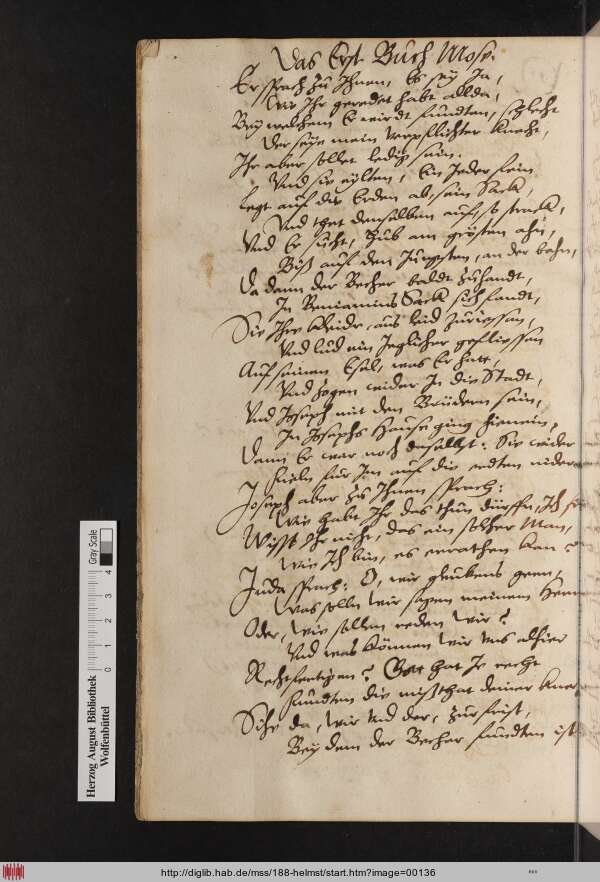 Das Erst Buch Mose.
Er sprach zu Ihnen, Es sey Ja,
Wie Ihr geredet habt allda,
Bey welchem Er wirdt fundten, schlecht
Der seye mein verpflichter knecht,
Ihr aber sollet ledig sein.
Vnd sie eylten, Ein Jeder fein
Legt auf die Erden ab, sein Sack,
Vnd thet denselben auf, so strack,
Vnd Er sucht, hub am grösten ahn,
Biß auf den Jüngsten, an der bahn,
Da dann der Becher baldt zuhandt,
In Beniamins Sack sich fandt,
Sie Ihre kleider aus leid zurissen,
Vnd lud ein Jeglicher geflissen
Auf seinen Esel, was Er hatt,
Vnd zogen wider In die Stadt,
Vnd Joseph mit den Brüdern sein,
In Josephs Hause ging hienein,
Dann Er war noch daselbst: Sie wider
fieln für Im auf die erdten nider
Joseph aber zu Ihnen sprach:
Wie habt Ihr das thun dürffen, Ich
Wisst Ihr nicht, das ein solcher Man,
Wie Ich bin, es errathen kan?
Juda sprach: O, wir glaubens gern,
Was solln wir sagen meinem Herrn
Oder, wie sollen reden wir?
Vnd was können wir vns alhier
Rechtfertigen? Gott hat Je recht
fundten die missthat deiner knec
Sihe da, wir vnd der, zur frist,
Bey dem der Becher fundten ist
Herzog August Bibliothek
Wolfenbüttel
0 1 2 3 4
Gray Scale
http://diglib.hab.de/mss/188-helmst/start.htm?image=00136